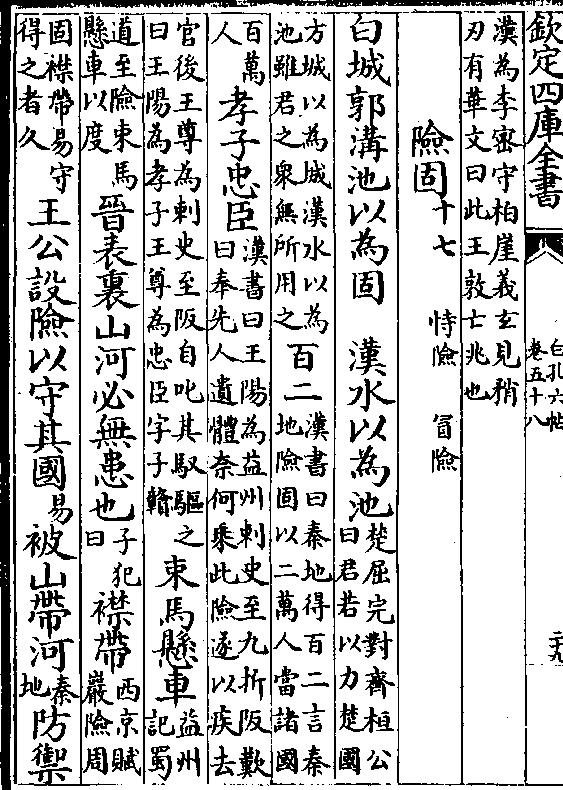 欽定四庫全書
白孔六帖
卷五十八
二十九
漢為李密守柏崖義玄見矟
刃有華文曰此王敦亡兆也
險固十七 恃險 冒險
白城郭溝池以為固 漢水以為池楚屈完對齊桓公
曰君若以力楚國
方城以為城漢水以為
池雖君之衆無所用之百二漢書曰秦地得百二言秦
地險固以二萬人當諸國
百萬
人孝子忠臣漢書曰王陽為益州刺史至九折阪歎
曰奉先人遺體奈何乗此險遂以疾去
官後王尊為刺史至阪自叱其馭驅之
曰王陽為孝子王尊為忠臣字子贛束馬懸車益州
記蜀
道至險束馬
懸車以度晉表裏山河必無患也子犯
曰襟帶西京賦
巖險周
固襟帶易守
得之者久王公設險以守其國易被山帶河秦
地防禦